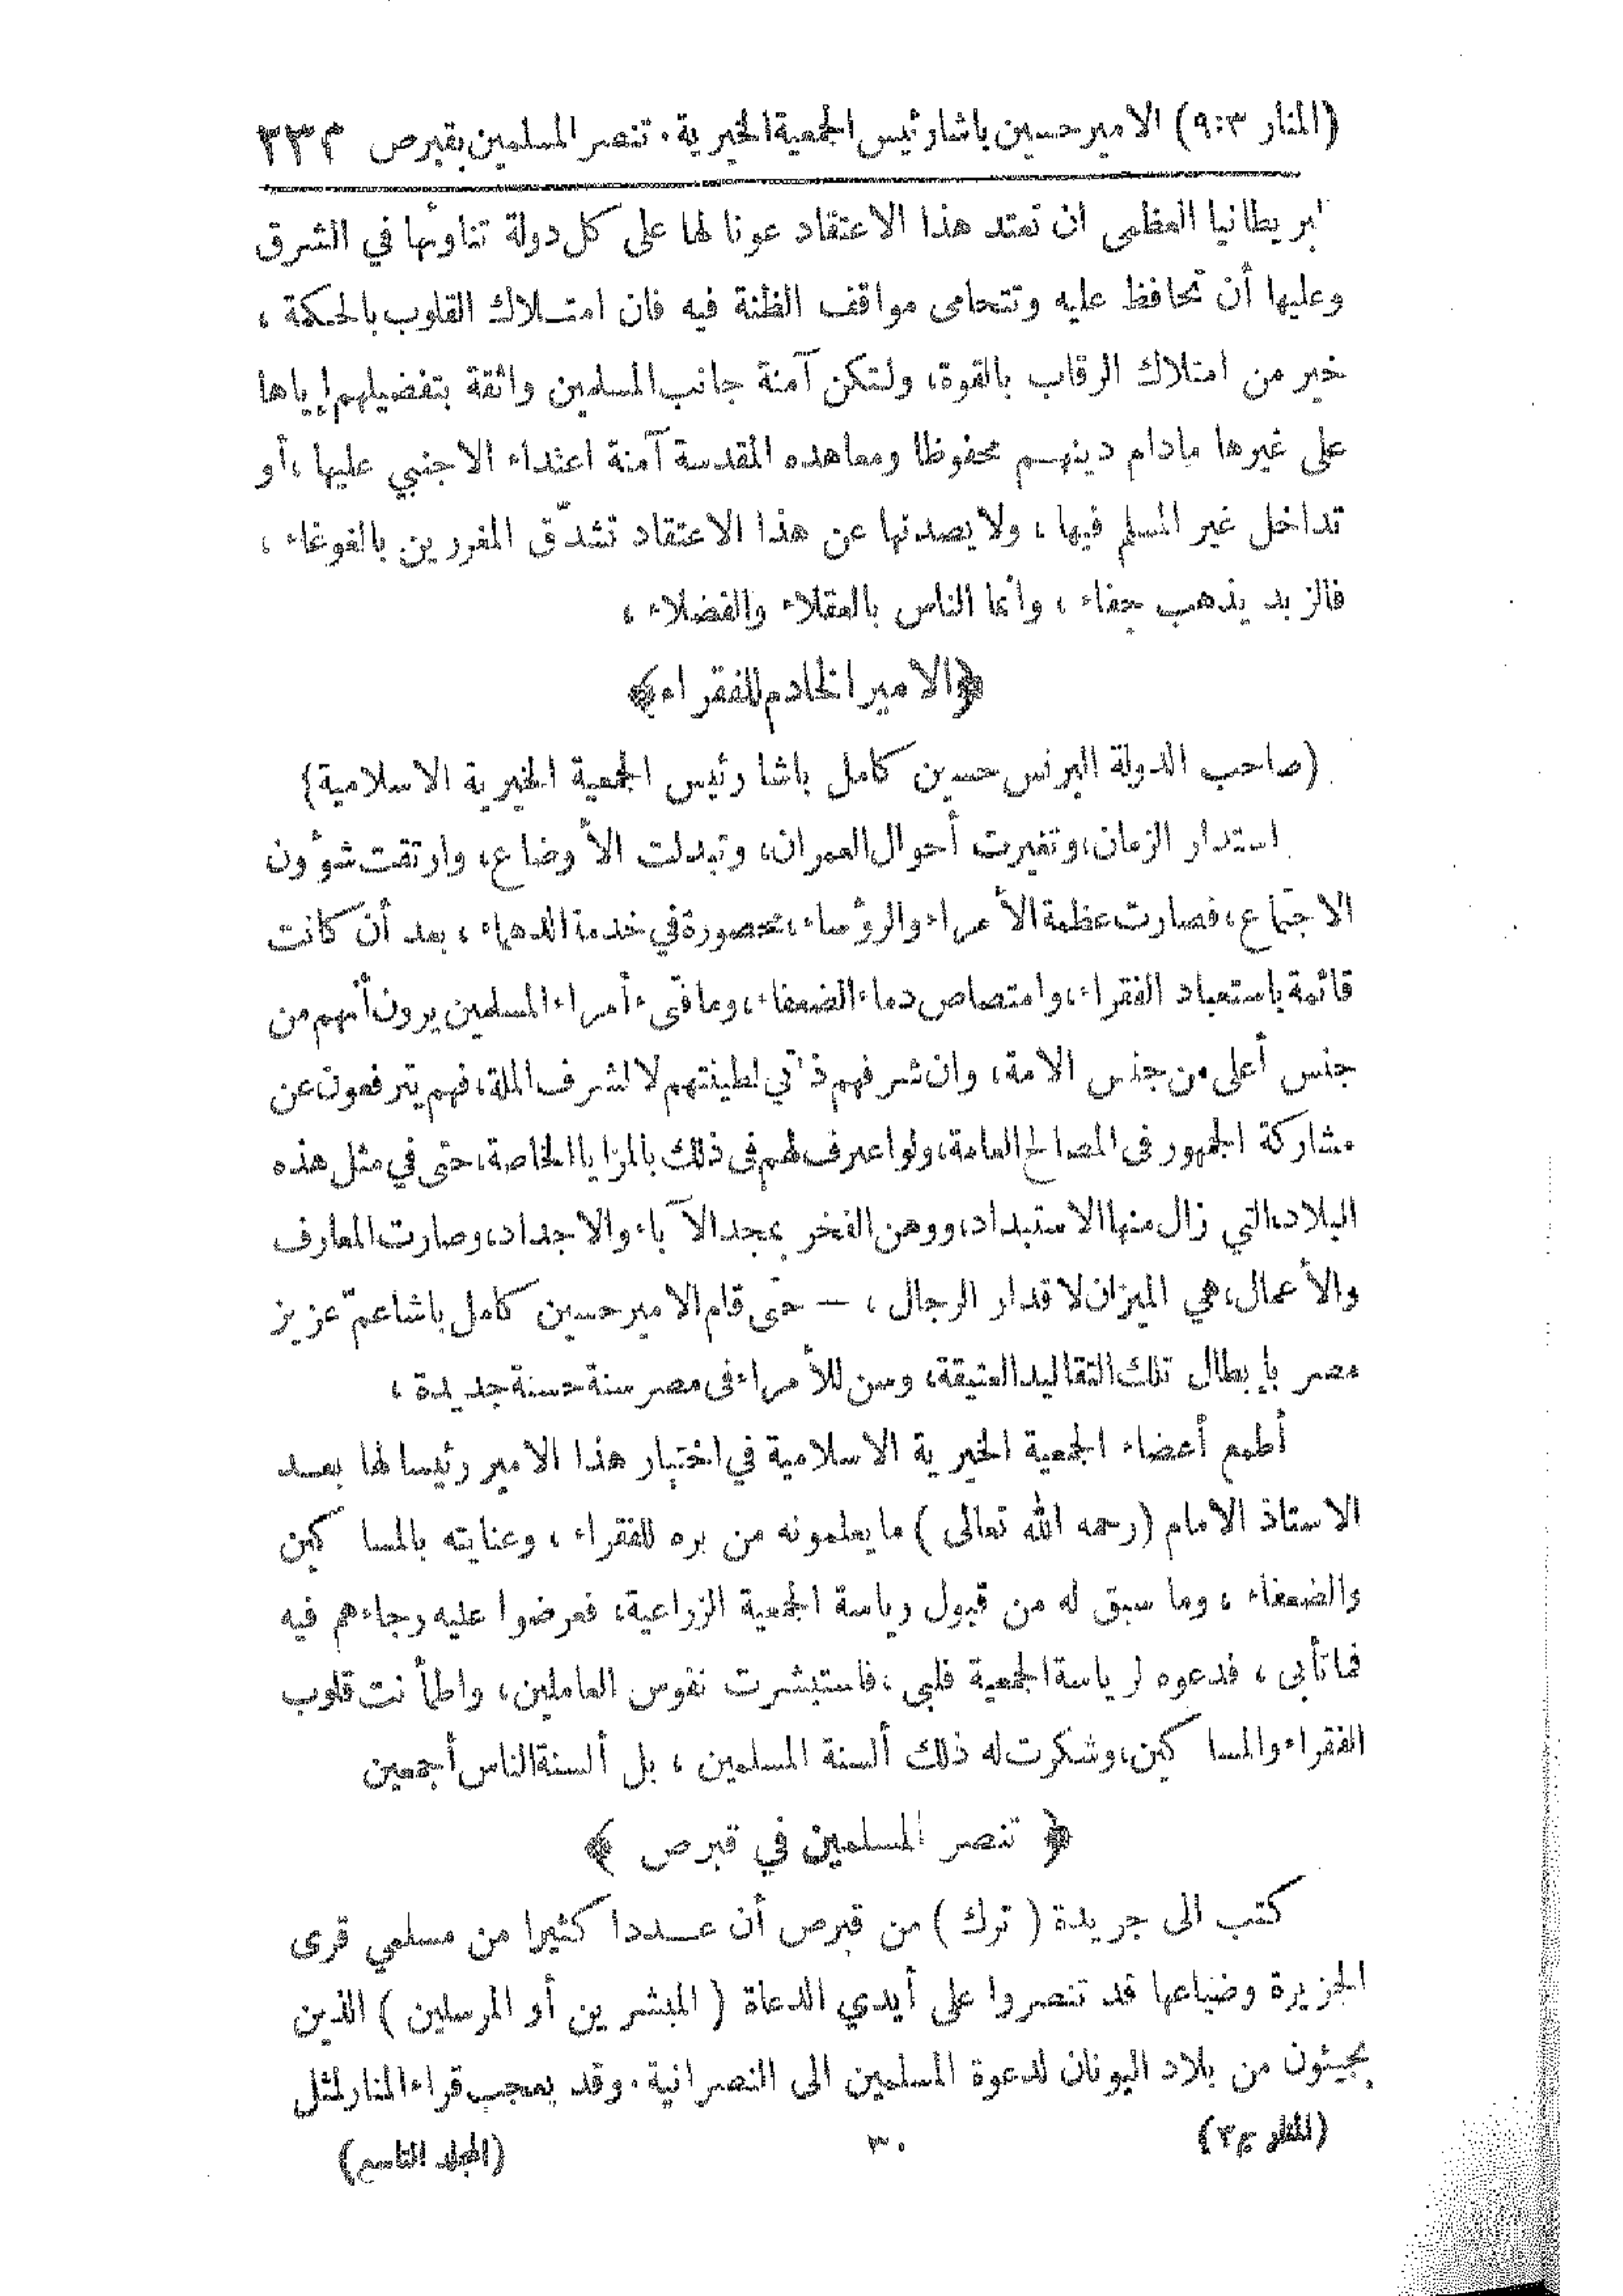 (المنار ٩:٣) الامير حسين باشا رئيس الجمعية الخيرية. تنصر المسلمين بقبرص ٢٣٣
لبريطانيا العظمى ان تعتد هذا الاعتقاد عونا لها على كل دولة تناوئها في الشرق
وعليها أن تحافظ عليه وتتحامى مواقف الظنة فيه فان امتلاك القلوب بالحكمة ،
خير من امتلاك الرقاب بالقوة، ولتكن آمنة جانب المسلمين واثقة بتفضيلهم إياها
على غيرها مادام دينهم محفوظا ومعاهده المقدسة آمنة اعتداء الاجنبي عليها ،أو
تداخل غير المسلم فيها ، ولا يصدنها عن هذا الاعتقاد تشدّق المغررين بالغوغاء ،
فالزبد يذهب جفاء ، وانما الناس بالعقلاء والفضلاء ،
﴿الامير الخادم للفقراء﴾
(صاحب الدولة البرنس حسين كامل باشا رئيس الجمعية الخيرية الاسلامية)
استدار الزمان، وتغيرت أحوال العمران، وتبدلت الأوضاع، وارتقت شؤون
الاجتماع، فصارت عظمة الأمراء والرؤساء، محصورة في خدمة الدهماء ، بعد أن كانت
قائمة باستعباد الفقراء، وامتصاص دماء الضعفاء، وما فتىء أمراء المسلمين يرون أنهم من
جنس أعلى من جنس الامة، وان شرفهم ذاتي لطينتهم لا لشرف الملة، فهم يترفعون عن
مشاركة الجمهور فى المصالح العامة، ولو اعترف لهم فى ذلك بالمزايا الخاصة، حتى في مثل هذه
البلاد، التي زال منها الاستبداد، ووهن الفخر بمجد الآباء والاجداد، وصارت المعارف
والأعمال، هي الميزان لاقدار الرجال ، — حتى قام الامير حسين كامل باشا عمّ عزيز
مصر بإبطال تلك التقاليد العتيقة، وسن للأمراء فى مصر سنة حسنة جديدة ،
أطمع أعضاء الجمعية الخيرية الاسلامية في اختيار هذا الامير رئيسا لها بعد
الاستاذ الامام (رحمه الله تعالى) ما يعلمونه من بره للفقراء ، وعنايته بالمساكين
والضعفاء ، وما سبق له من قبول رياسة الجمعية الزراعية، فعرضوا عليه رجاءهم فيه
فما تأبى ، فدعوه لرياسة الجمعية فلبى ، فاستبشرت نفوس العاملين، واطمأنت قلوب
الفقراء والمساكين، وشكرت له ذلك ألسنة المسلمين ، بل ألسنة الناس أجمعين
﴿ تنصر المسلمين في قبرص ﴾
كتب الى جريدة (ترك) من قبرص أن عددا كثيرا من مسلمي قرى
الجزيرة وضياعها قد تنصروا على أيدي الدعاة (المبشرين أو المرسلين) الذين
يجيئون من بلاد اليونان لدعوة المسلمين الى النصرانية. وقد يعجب قراء المنار لمثل
(المنار ج٣) ٣٠ (المجلد التاسع)